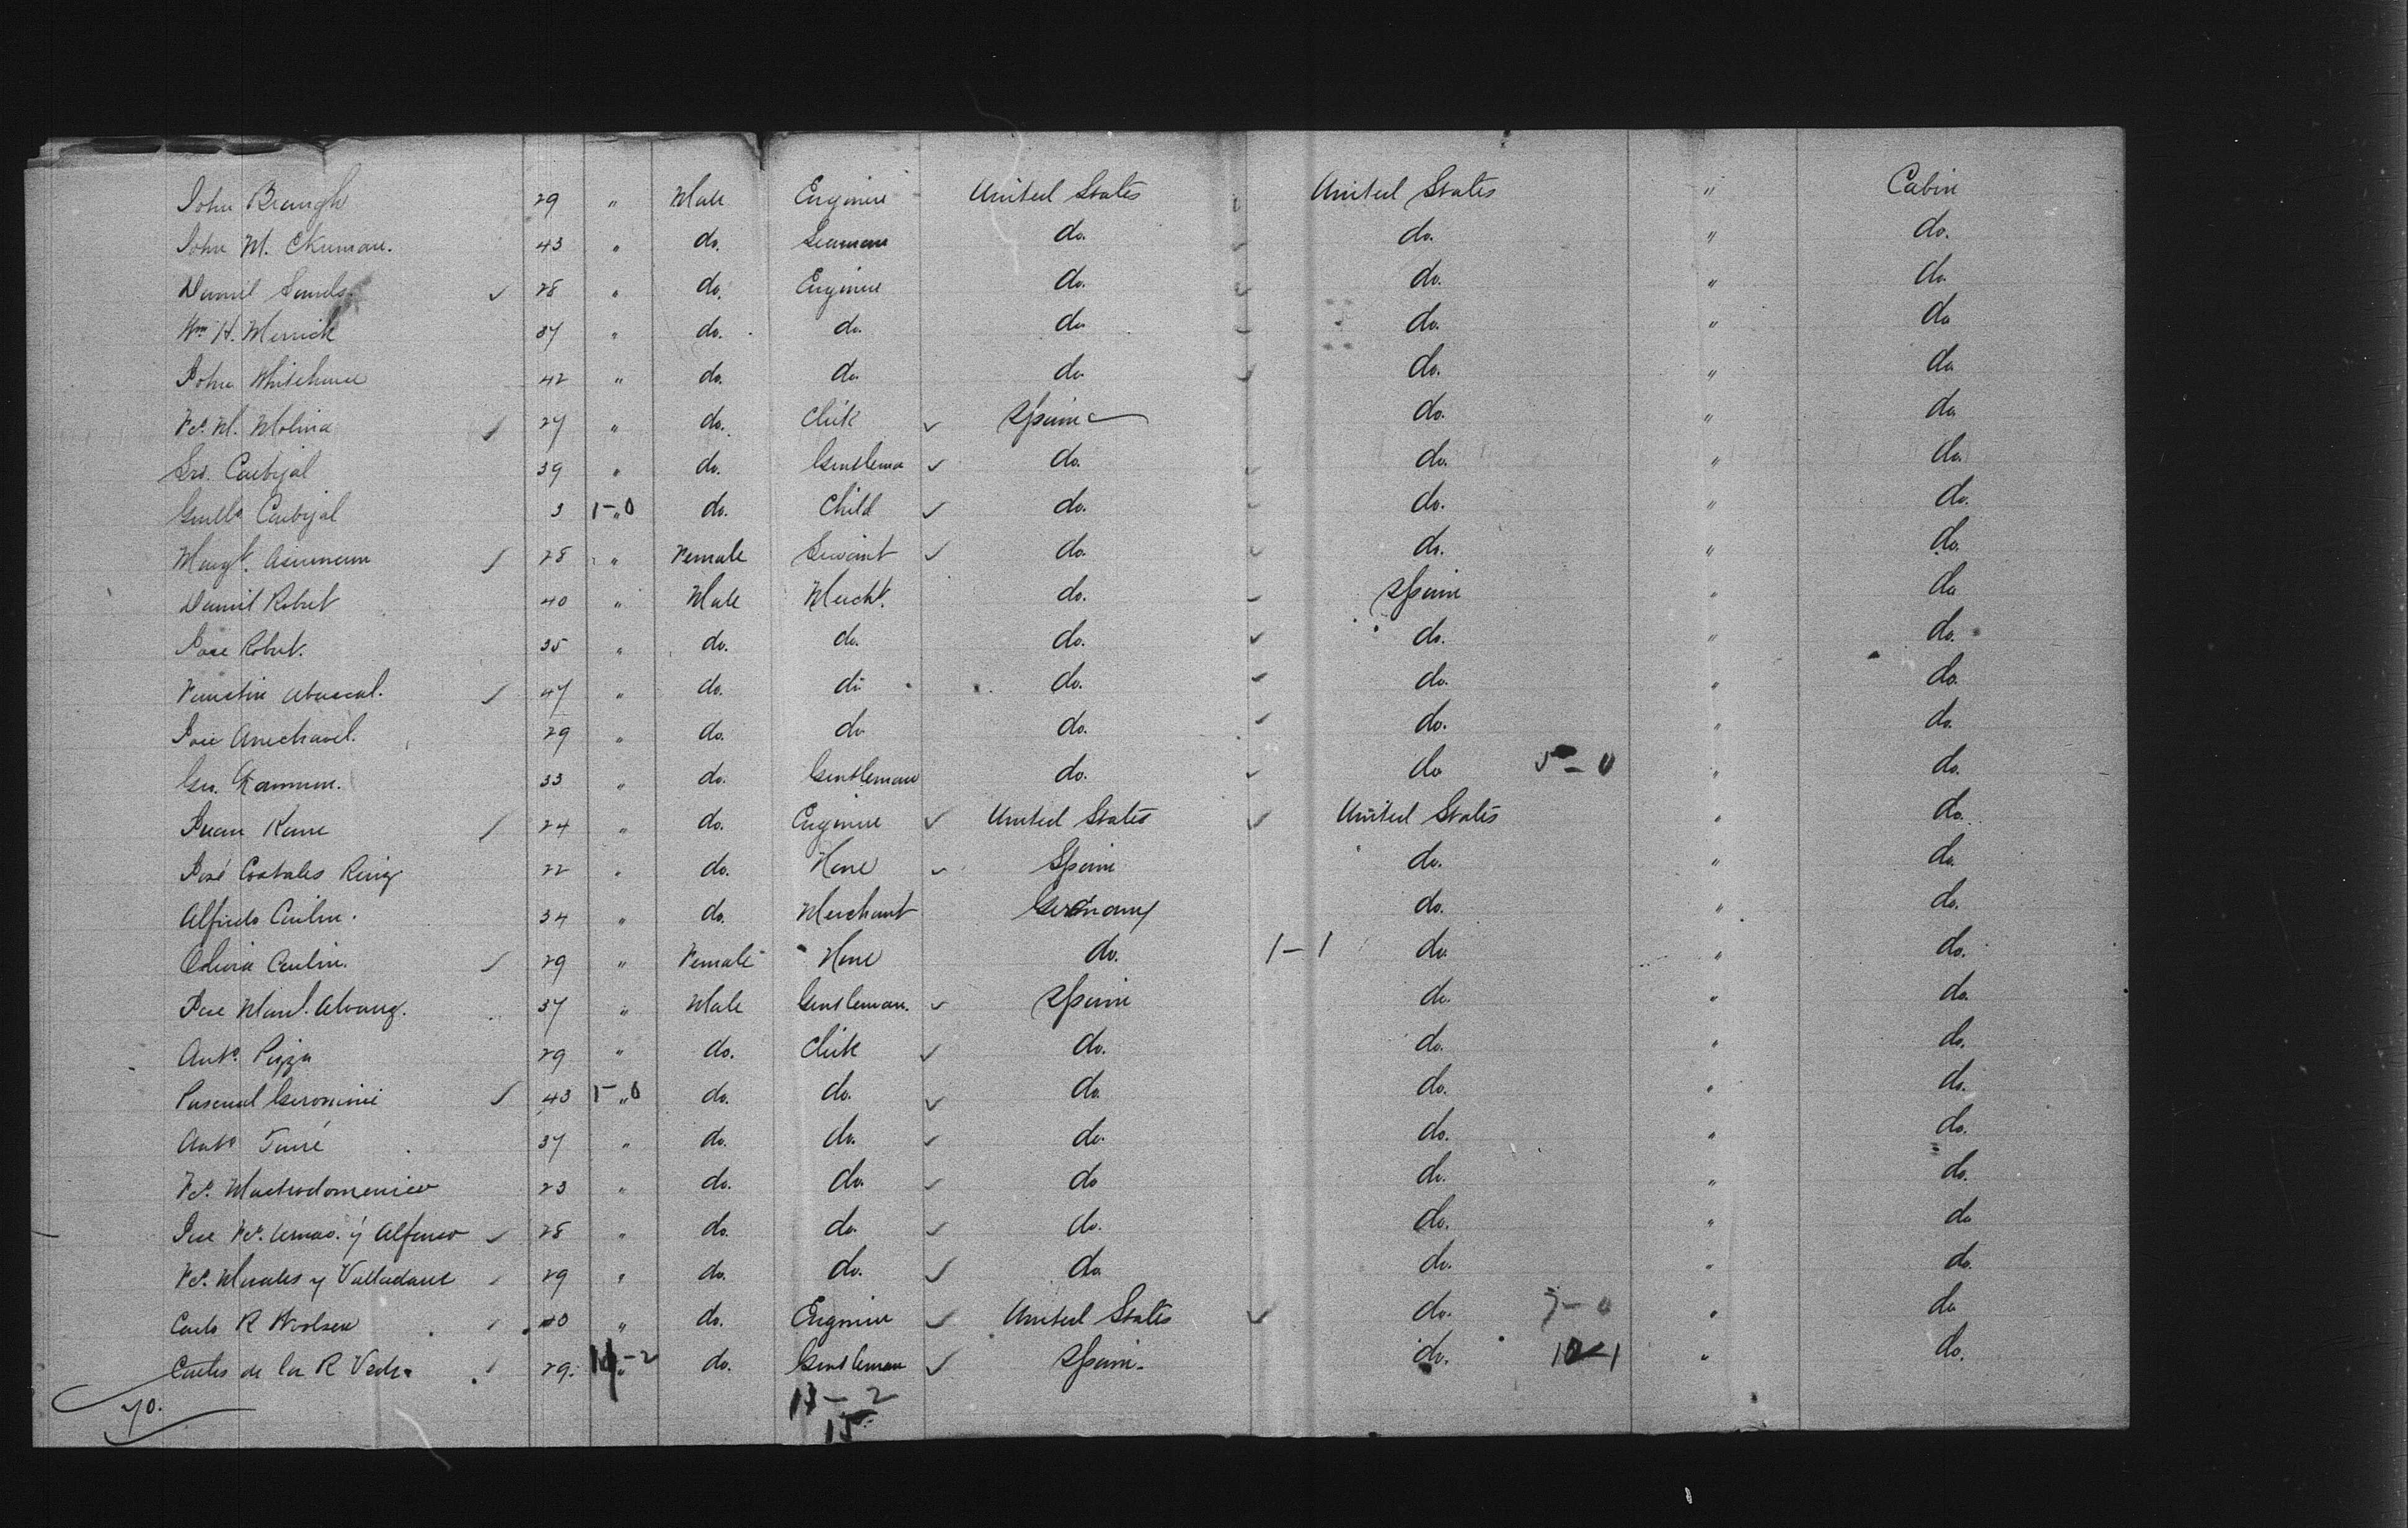 John Brangh 29 " Male Engineer United States United States " Cabin
John M. Ekuman. 43 " do. Seaman do. do. " do.
Daniel Sands. 28 " do. Engineer do. do. " do
Wm H. Merrick 37 " do. do. do do. " do
John Whitehouse 42 " do. do do do. " do
Fco. M. Molina 27 " do. Clerk Spain do. " do
Carbajal 39 " do. Gentleman do. do. " do.
Guillo Carbajal 3 1-0 " do. Child do. do. " do.
Margt. 28 " Female Servant do. do. " do.
Daniel Robert 40 " Male Mercht. do. Spain " do
Jose Robert. 35 " do. do. do. do. " do.
Faustin Abascal. 47 " do. do do. do. " do.
Jose Arechavel. 29 " do. do do. do. " do.
Geo. 33 " do. Gentleman do. do 5-0 " do.
Juan Kane 24 " do. Engineer United States United States " do.
José Costales Ruiz 22 " do. None Spain do. " do.
Alfredo 34 " do. Merchant Germany do. " do.
29 " Female None do. 1-1 do. " do.
Jose Manl. Alvarez. 37 " Male Gentleman. Spain do. " do.
Anto. 29 " do. Clerk do. do. " do.
Pascual Geronimi 43 1-0 " do. do. do. do. " do.
Anto 37 " do. do. do. do. " do.
Fco. Mastrodomenico 23 " do. do. do do. " do.
Jose Fco. Armas. y Alfonso 28 " do. do. do. do. " do
Fco. Morales y Valladares 29 " do. do. do do. " do.
Carlo R Woolsen 40 " do. Engineer United States do. 7-0 " do
Carlos de la R Vedra 29. 14-2 " do. Gentleman Spain. do. 10-1 " do.
70.
13-2
15